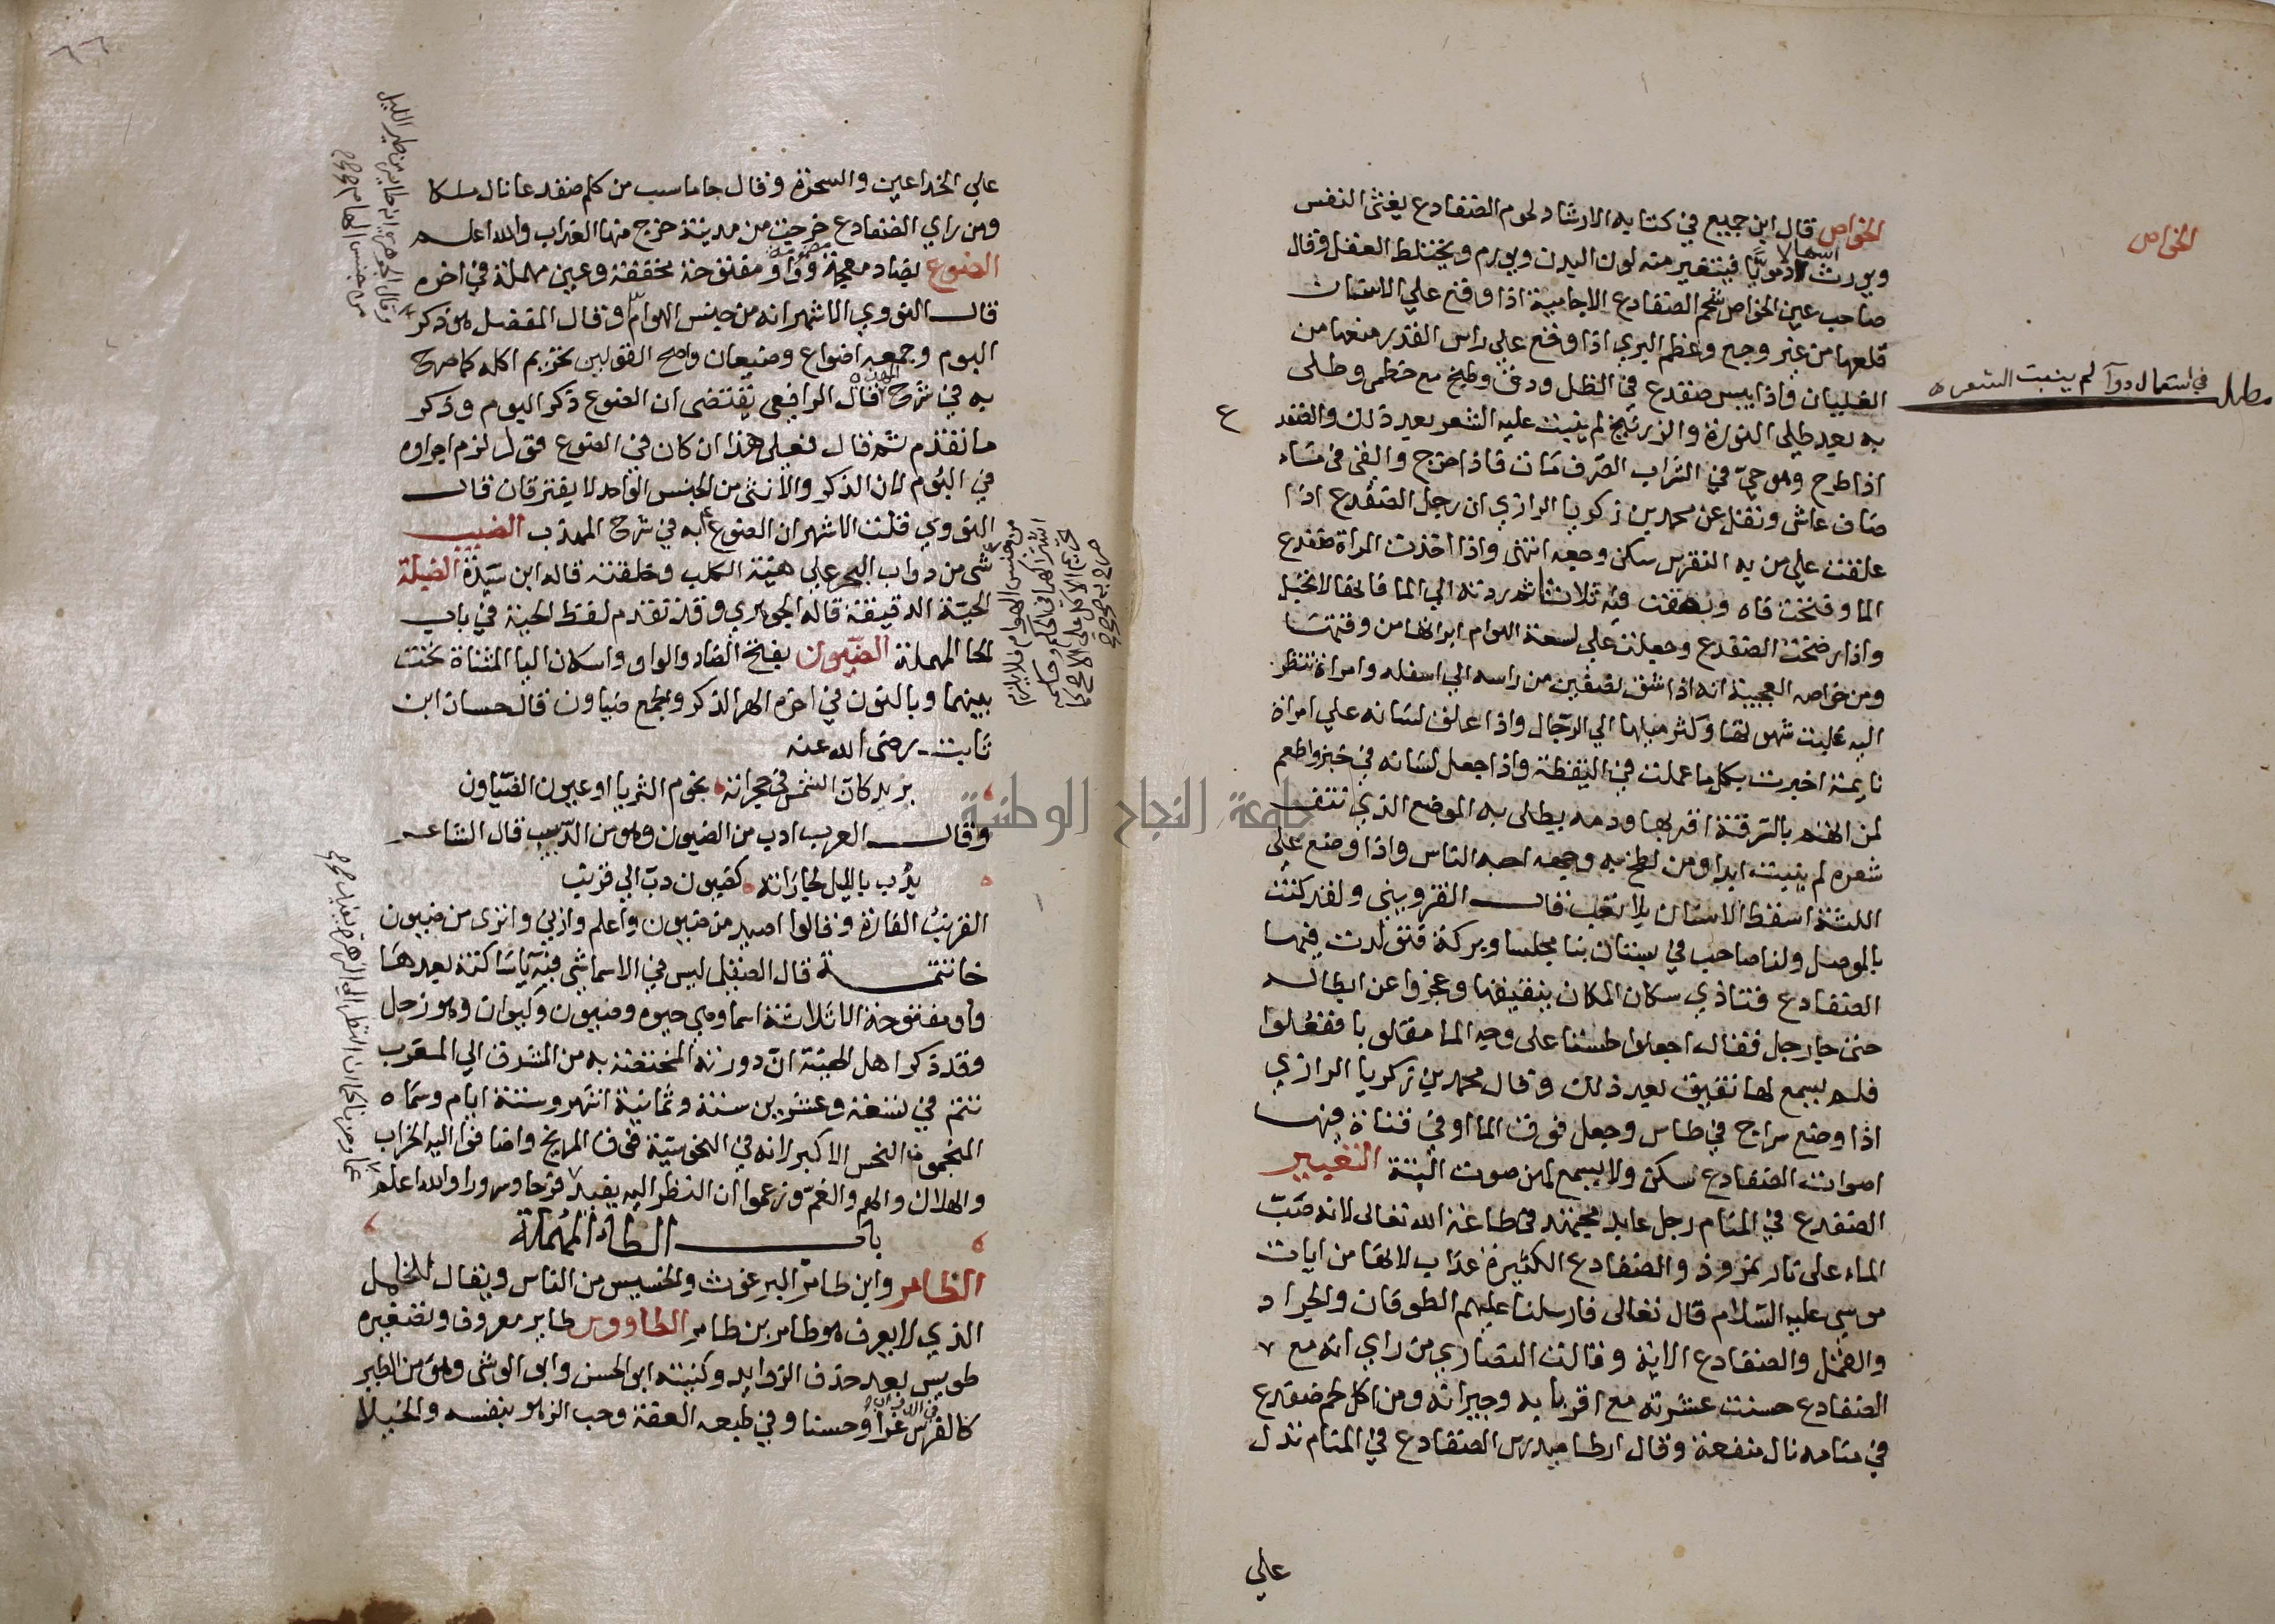 الخواص
الخواص قال ابن جميع في كتابه الارشاد لحوم الضفادع يغثى النفس
ويورث اسهالا دمويّا فيتغير منه لون البدن ويورم ويختلط العقل وقال
صاحب عين الخواص شحم الضفادع الاجامية اذا وضع علي الاسنان
قلعها من غير وجع وعظم البري اذا وضع علي راس القدر منعها من
مطلب في استعمال دوآ لم ينبت الشعر
الغليان واذا يبس ضفدع في الظل ودق وطبخ مع خطمى وطلى
به بعد طلي النورة والزرنيخ لم ينبت عليه الشعر بعد ذلك والضفدع
اذا طرح وهو حيّ في الشراب الصرف مات فاذا اخرج والقى فى ماء
صاف عاش ونقل عن محمد بن زكريا الرازي ان رجل الضفدع اذا
علقت علي من به النقرس سكن وجعه انتهى واذا اخذت المراة ضفدع
الما وفتحت فاه وبصقت فيه ثلاثا ثم ردته الي الما فانها لا تحبل
واذا رضخت الضفدع وجعلت علي لسعة الهوام ابراتها من وقتها
ومن خواصه العجيبة انه اذا شق نصفين من راسه الي اسفله وامراة تنظر
اليه غلبت شهوتها وكثر ميلها الي الرجال واذا علق لسانه علي امراة
نايمة اخبرت بكل ما عملت في اليقظة واذا جعل لسانه في خبز واطعم
لمن اتهم بالسرقة اقر بها ودمه يطلى به الموضع الذي نتف
شعره لم ينبت ابدا ومن لطخ به وجهه احبه الناس واذا وضع علي
اللثة اسقط الاسنان بلا تعب قال القزوينى ولقد كنت
بالموصل ولنا صاحب في بستان بنا مجلسا وبركة فتولدت فيها
الضفادع فتاذي سكان المكان بنقيقها وعجزوا عن ابطاله
حتى جا رجل فقال اجعلوا طستا على وجه الما مقلوبا ففعلوا
فلم يسمع لها نقيق بعد ذلك وقال محمد بن زكريا الرازي
اذا وضع سراج في طاس وجعل فوق الما او في قناة فيها
اصوات الضفادع سكن ولا يسمع لهن صوت البتة التعبير
الضفدع في المنام رجل عابد مجتهد فى طاعة الله تعالى لانه صَبّ
الماء على نار نمروذ والضفادع الكثيرة عذاب لانها من ايات
موسي عليه السّلام قال تعالى فارسلنا عليهم الطوفان والجراد
والقمّل والضفادع الاية وقالت النصاري من راي انه مع
الضفادع حسنت عشرته مع اقربايه وجيرانه ومن اكل لحم ضفدع
في منامه نال منفعة وقال ارطاميدرس الضفادع في المنام تدل
علي
٦٦
علي الخداعين والسحرة وقال جاماسب من كلم ضفدعا نال ملكا
ومن راي الضفادع خرجت من مدينة خرج منها العذاب والله اعلم
الضوع بضاد معجمة مضمومة وواو مفتوحة مخففة وعين مهملة في اخره
قال النووي الاشهر انه من جنس الهوام وقال المفضل هو ذكر
وقال الجوهري انه طاير من طير الليل
من جنس الهام صح
البوم وجمعه اضواع وضيعان واصح القولين تحريم اكله كما صرح
به في شرح المهذب قال الرافعي يقتضى ان الضوع ذكر البوم وذكر
ما تقدم ثم قال فعلي هذا ان كان في الضوع قول لزم اجراوه
في البوم لان الذكر والانثى من الجنس الواحد لا يفترقان قال
النووي قلت الاشهر ان الضوع به في شرح المهذب الضيب
من جنس الهوام فلا يلزم
اشتراكهما في الحكم وحكمه
تحريم الاكل علي الاصح كما
صرح به صح
شى من دواب البحر علي هيئة الكلب وخلقته قاله ابن سيدة الضيلة
الحيّة الدقيقة قاله الجوهري وقد تقدم لفظ الحية في باب
الحا المهملة الضيون بفتح الضاد والواو واسكان اليا المثناة تحت
بينهما وبالنون في اخره الهر الذكر والجمع ضياون قال حسان ابن
ثابت رضى الله عنه
يريد كان الشمس في حجراته نجوم الثريا او عيون الضياون
وقال العرب ادب من الضيون وهو من الدبيب قال الشاعر
يدب بالليل لجاراته كضيون دبّ الي قرنب
القرنب الفارة وقالوا اصيد من ضيون واعلم وازنى وانزى من ضيون
خاتمة قال الصقيل ليس في الاسما شى فيه يا ساكنة بعدها
واو مفتوحة الا ثلاثة اسما وهي حيوه وضيون وكيوان وهو زحل
وقد ذكر اهل الهيئة ان دورته المختصة به من المشرق الي المغرب
تتم في تسعة وعشرين سنة وثمانية اشهر وستة ايام وسماه
المنجمون النحس الاكبر لانه في النحوسية فوق المريخ واضافوا اليه الخراب
والهلاك والهم والغمّ وزعموا ان النظر اليه يفيد فرحا وسرورا والله اعلم
غما وحزنا كما ان النظر الي الزهرة يفيد صح
باب الطاء المهملة
الطامر وابن طامر البرغوث والخسيس من الناس ويقال للخمل
الذي لا يعرف هو طامر بن طامر الطاووس طاير معروف وتصغيره
طويس بعد حذف الزوايد وكنيته ابو الحسن وابو الوشى وهو من الطير
كالفرس في الدواب عزا وحسنا وفي طبعه العفة وحب الزهو بنفسه والخيلا
جامعة النجاح الوطنية